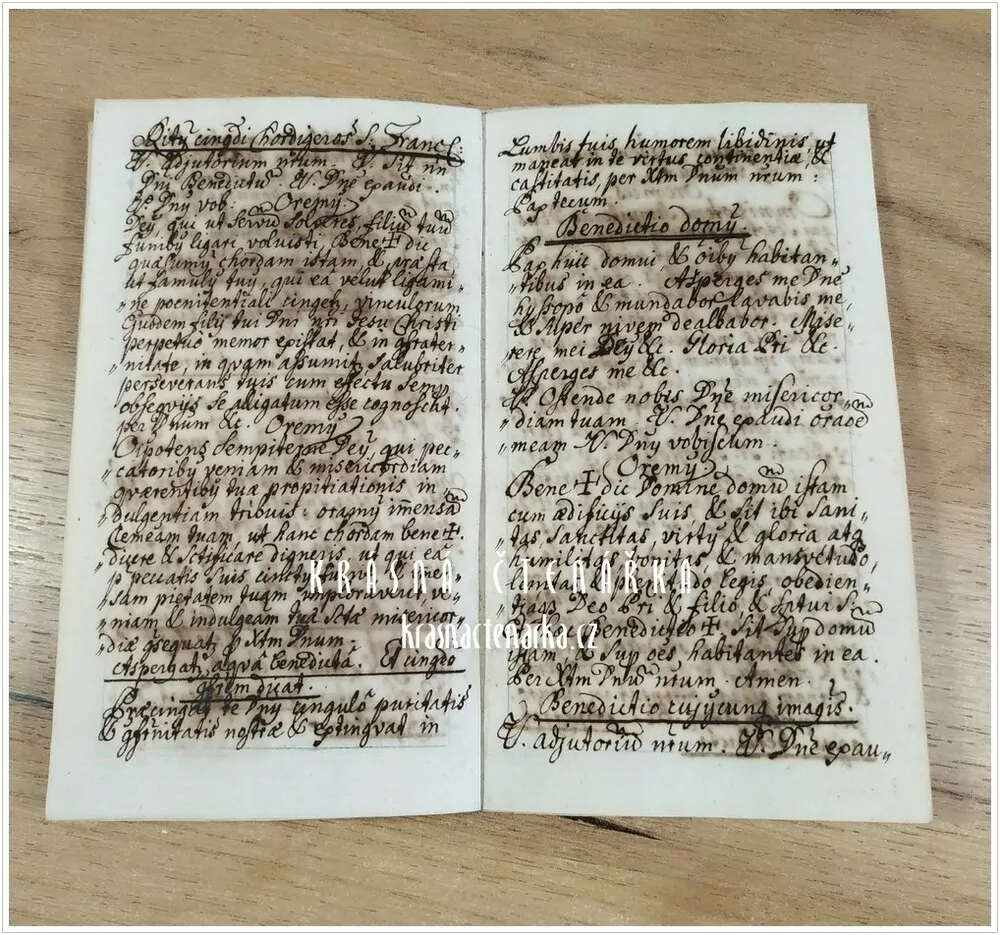 Ritꝰ cingdi Chordigeros S. Franc:
V. Adjutorium nrum. V. Sit nn
Dni Benedictū. V. Dne exaudi.
V. Dnꝰ vob: Oremꝰ
Deꝰ, qui ut servū solveres, filiū tuū
funibꝰ ligari voluisti, Bene ☩ dic
quæsumꝰ chordam istam, & præsta
ut famulꝰ tuꝰ, qui ea velut ligami„
„ne pœnitentiali cinget, vinculorum
Ejusdem filij tui Dni nri Jesu Christi
perpetuo memor existat, & in
„nitate, in quam assumit, salubriter
perseverans tuis cum effectu semp
obseqvijs se alligatum esse cognoscat.
per Dnum &c. Oremꝰ
Oipotens sempiterne Deꝰ, qui pec„
„catoribꝰ veniam & misericordiam
qværentibꝰ tuæ propitiationis in„
„dulgentiam tribuis: oramꝰ im̄ensā
Clemeam tuam, ut hanc chordam bene☩.
dicere & sctificare digneris, ut qui ea
p peccatis suis cinctꝰ
„sam pietatem tuam ve„
„niam & indulgeam tuæ sctæ misericor„
„diæ gsequat p Xtm Dnum.
Aspergat aqvâ benedictâ. Et cingdo
dicat.
Præcingat te Dnꝰ cingulô puritatis
& nostræ & extingvat in
Lumbis tuis humorem libidinis, ut
maneat in te virtus continentiæ &
castitatis, per Xtm Dnum nrum:
Pax tecum.
Benedictio domꝰ
Pax huic domui, & oibꝰ habitan„
„tibus in ea. Asperges me Dne
hyssopô & mundabor Lavabis me,
& super nivem dealbabor. Mise„
rere mei Deꝰ &c. Gloria Pri &c.
Asperges me &c.
V. Ostende nobis Dne misericor„
„diam tuam. V. Dne exaudi oraoē
„meam. V. Dnꝰ vobiscum.
Oremꝰ
Bene ☩ dic Domine domū istam
cum ædificijs suis, & sit ibi sani„
„tas, sanctitas, virtꝰ, & gloria atq
humilitas, bonitas, & mansvetudo,
lenitas & legis, obedien„
„tia Deo Pri & filio, & Sptui S:
Benedictio ☩ sit sup domū
istam, & sup oēs habitantes in ea.
Per Xtm Dnū nrum. Amen.
Benedictio cujꝰcunq imagis.
V. adjutoriū nrum. V. Dne exau„
KRÁSNÁ ČTENÁŘKA
krasnactenarka.cz